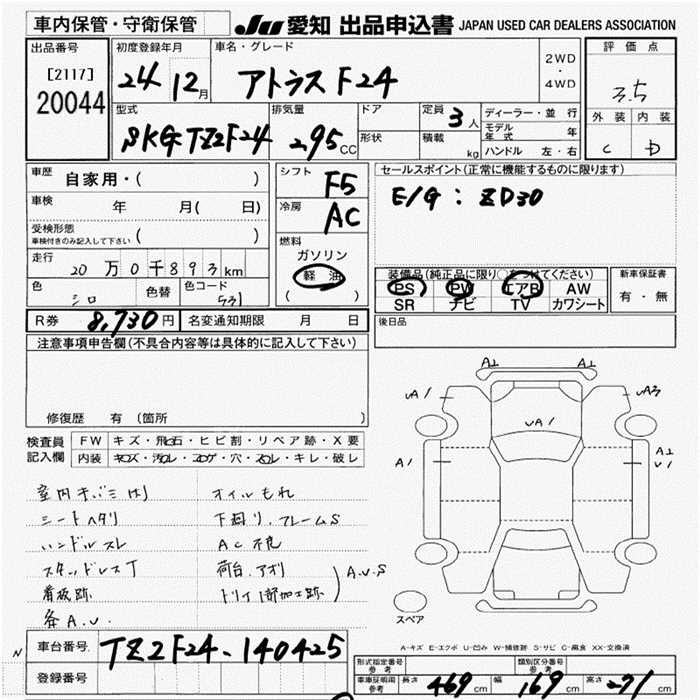 車内保管・守衛保管
JU 愛知 出品申込書 JAPAN USED CAR DEALERS ASSOCIATION
出品番号 初度登録年月 車名・グレード 評価点
[2117]
20044 24 12月 アトラス F24 2WD・4WD 3.5
型式 排気量 ドア 定員 3人 ディーラー・並行 外装 内装
SKG-TZ2F24 2.95 CC 形状 積載 kg モデル年式 年 C D
ハンドル 左・右
車歴 自家用・( ) シフト F5 セールスポイント(正常に機能するものに限ります)
車検 年 月( 日) 冷房 AC E/G : ZD30
受検形態 車検付きのみ記入して下さい ( )
燃料
ガソリン
軽油
( )
走行 20万0千893km
色 シロ 色替 色コード 531
装備品(純正品に限り○をつけてください) 新車保証書
PS PW エアB AW 有・無
SR ナビ TV カワシート
R券 8,730円 名変通知期限 月 日 後日品
注意事項申告欄(不具合内容等は具体的に記入して下さい)
修復歴 有 (箇所
A⊥ A⊥
UA1 UA3
UA1
A1 A⊥
U1
検査員記入欄 FW キズ・飛石・ヒビ割・リペア跡・X要
内装 キロズ・汚ロレ・コロゲ・穴・スロレ・キレ・破レ
オイルもれ
シートヘタリ 下回リ、フレームS
ハンドルスレ AC不良
スタッドレスT 荷台、アオリ
看板跡 A.U.S
各A.U.
スペア
A-キズ E-エクボ U-凹み W-補修跡 S-サビ C-腐食 XX-交換済
N
車台番号 TZ2F24-140425
登録番号
形式指定番号 参考 類別区分番号 参考
車庫証明用 参考 長さ 469cm 幅 169cm 高さ cm